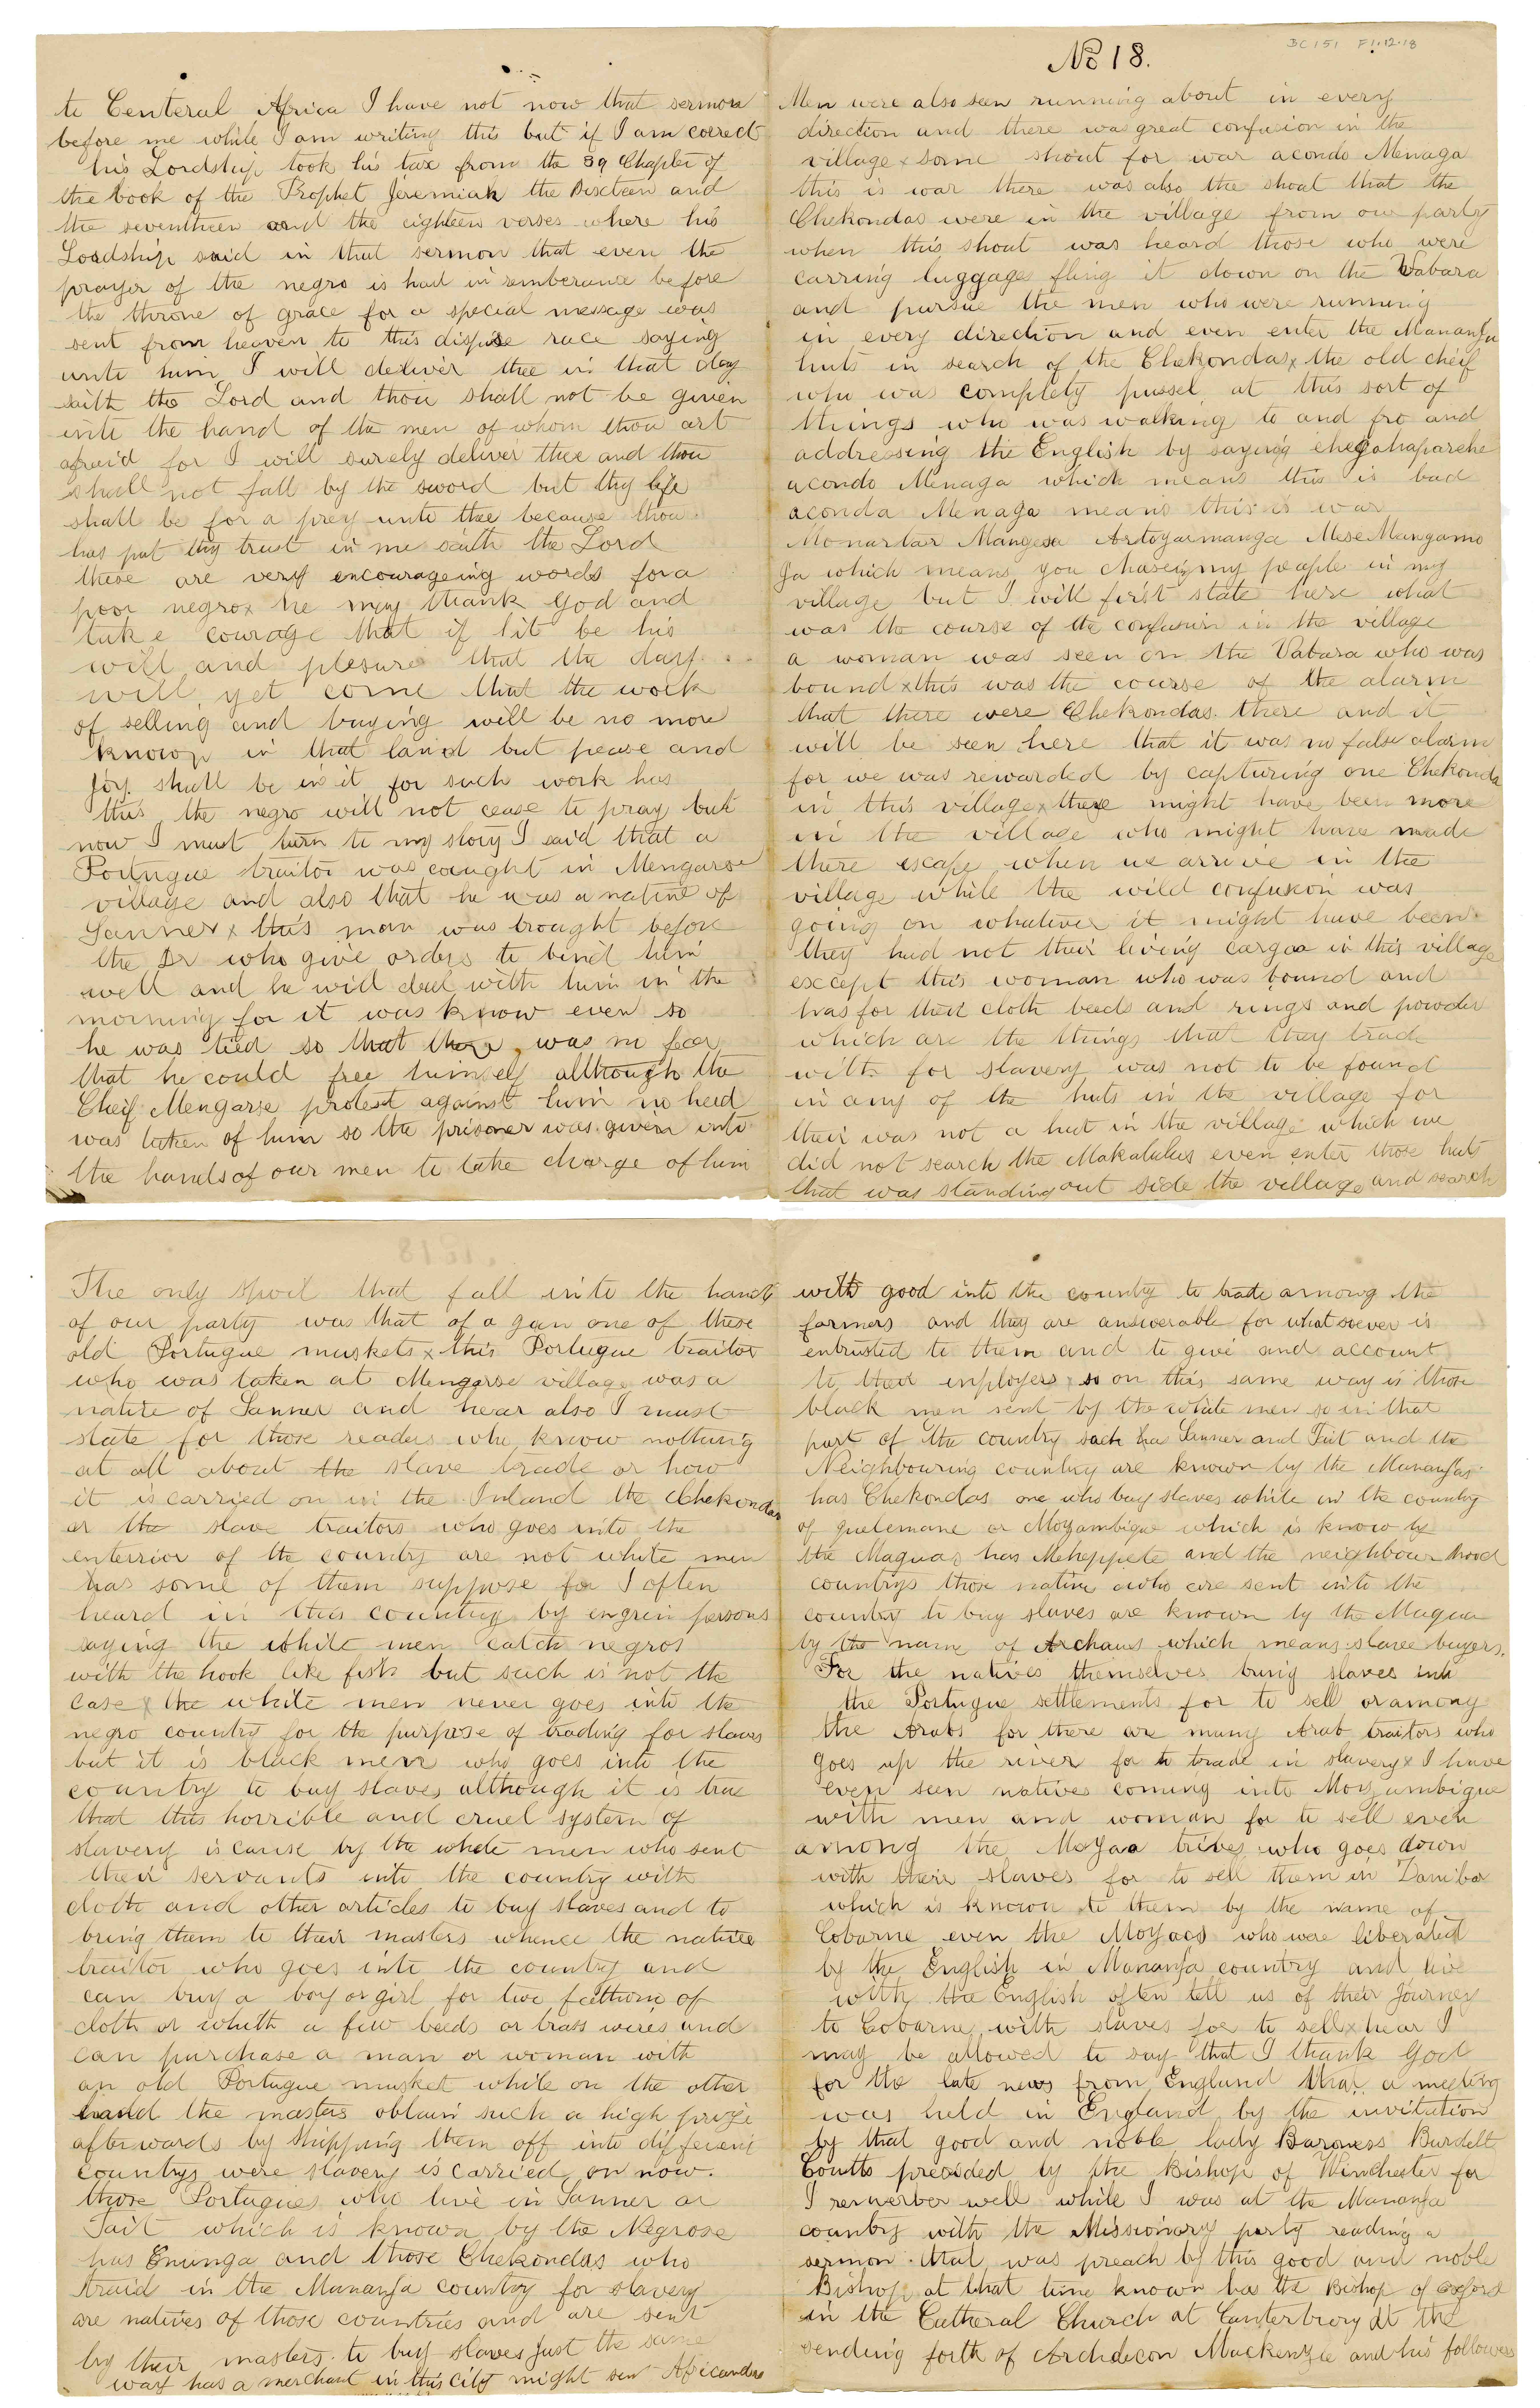 to Centeral Africa I have not now that sermon
before me while I am writing this but if I am corect
his Lordship took his tax from the 39 Chapter of
the book of the Prophet Jeremiah the Sixteen and
the seventheen and the eighteen verses where his
Loadship said in that sermon that even the
prayer of the negro is had in remberance before
the throne of grace for a special message was
sent from heaven to this dispise race saying
unto him I will deliver thee in that day
saith the Lord and thou shall not be given
into the hand of the men of whom thou art
afraid for I will surely deliver thee and thou
shall not fall by the sword but thy life
shall be for a prey unto thee because thou
has put thy trust in me saith the Lord
these are very encourageing words for a
poor negro x he may thank God and
take courage that if hit be his
will and plesure that the day
will yet come that the work
of selling and buying will be no more
known in that land but peace and
joy shall be in it for such work has
this the negro will not cease to pray but
now I must turn to my story I said that a
Portugue traitor was caught in Mengarse
village and also that he was a native of
Sanner x this man was brought before
the Dr who give orders to bind him
well and he will deal with him in the
morning for it was know even so
he was tied so that there was no fear
that he could free himself although the
Cheif Mengarse protest against him no heed
was taken of him so the prisoner was given into
the hands of our men to take charge of him
BC151 F1.12.18
No 18.
Men were also seen running about in every
direction and there was great confusion in the
village x some shout for war acondo Menaga
this is war there was also the shout that the
Chekondas were in the village from our party
when this shout was heard those who were
carring luggages fling it down on the Vabara
and pursue the men who were running
in every direction and even enter the Mananja
huts in search of the Chekondas x the old cheif
who was complety pussel at this sort of
things who was walking to and fro and
addressing the English by saying chegahaparche
acondo Menaga which means this is bad
aconda Menaga means this is war
Monartar Mangesa Artoyaimanga Mese Mangamo
Ja which means you chaseing my people in my
village but I will first state here what
was the course of the confusion in the village
a woman was seen on the Vabara who was
bound x this was the course of the alarm
that there were Chekondas there and it
will be seen here that it was no false alarm
for we was rewarded by capturing one Chekonda
in this village x there might have been more
in the village who might have made
there escape when we arrive in the
village while the wild confusion was
going on whatever it might have been
they had not their living cargoo in this village
except this woman who was bound and
has for their cloth beeds and rings and powder
which are the things that they trade
with for slavery was not to be found
in any of the huts in the village for
their was not a hut in the village which we
did not search the Makalulus even enter those huts
that was standing out side the village and search
The only spoil that fall into the hands
of our party was that of a gun one of these
old Portugue muskets x this Portugue traitor
who was taken at Mengarse village was a
native of Sanner and hear also I must
state for those readers who know nothing
at all about the slave trade or how
it is carried on in the Inland the Chekondas
or the slave traitors who goes into the
enterrior of the country are not white men
has some of them suppose for I often
heard in this country by engrein persons
saying the white men catch negros
with the hook like fish but such is not the
case x the white men never goes into the
negro country for the purpose of trading for slaves
but it is black men who goes into the
country to buy slaves although it is true
that this horrible and cruel system of
slavery is cause by the white men who sent
their servants into the country with
cloth and other articles to buy slaves and to
bring them to their masters whence the native
traitor who goes into the country and
can buy a boy or girl for two fathom of
cloth or whith a few beeds or brass weres and
can purchase a man or woman with
an old Portugue musket while on the other
hand the masters obtain such a high prize
afterwards by shipping them off into different
countrys were slavery is carried on now.
those Portugues who live in Sanner or
Tait which is known by the Negrose
has Enunga and those Chekondas who
traid in the Mananja country for slavery
are natives of those countries and are sent
by their masters to buy slaves just the same
way has a merchant in this city might sen Africanders
with good into the county to trade among the
farmers and they are answerable for whatsoever is
entrusted to them and to give and account
to their employers x so on this same way is those
black men sent by the white men so in that
part of the country such has Sanner and Tait and the
Neighbouring country are known by the Mananjas
has Chekondas one who buy slaves while in the country
of quelemane or Mozambique which is know by
the Maguas has Meheppete and the neighbour hood
countrys those native who are sent into the
country to buy slaves are known by the Magua
by the name of Archaus which means slave buyers.
For the natives themselves bring slaves into
the Portugue settlements for to sell or among
the Arabs for there are many Arab traitors who
goes up the river for to trade in slavery x I have
even seen natives coming into Mozambique
with men and woman for to sell even
among the Moyao tribes who goes down
with their slaves for to sell them in Zanibar
which is known to them by the name of
Cobarne even the Moyaos who were liberated
by the English in Mananja country and live
with the English often tell us of their Journey
to Cobarne with slaves for to sell x hear I
may be allowed to say that I thank God
for the late news from England that a meeting
was held in England by the invitation
by that good and noble lady Baroness Burdett
Coutts presided by the Bishop of Winchester for
I remerber well while I was at the Mananja
country with the Missionary party reading a
sermon that was preach by this good and noble
Bishop at that time known has the Bishop of oxford
in the Catheral Church at Canterbury at the
sending forth of Archdecon Mackenzie and his followers